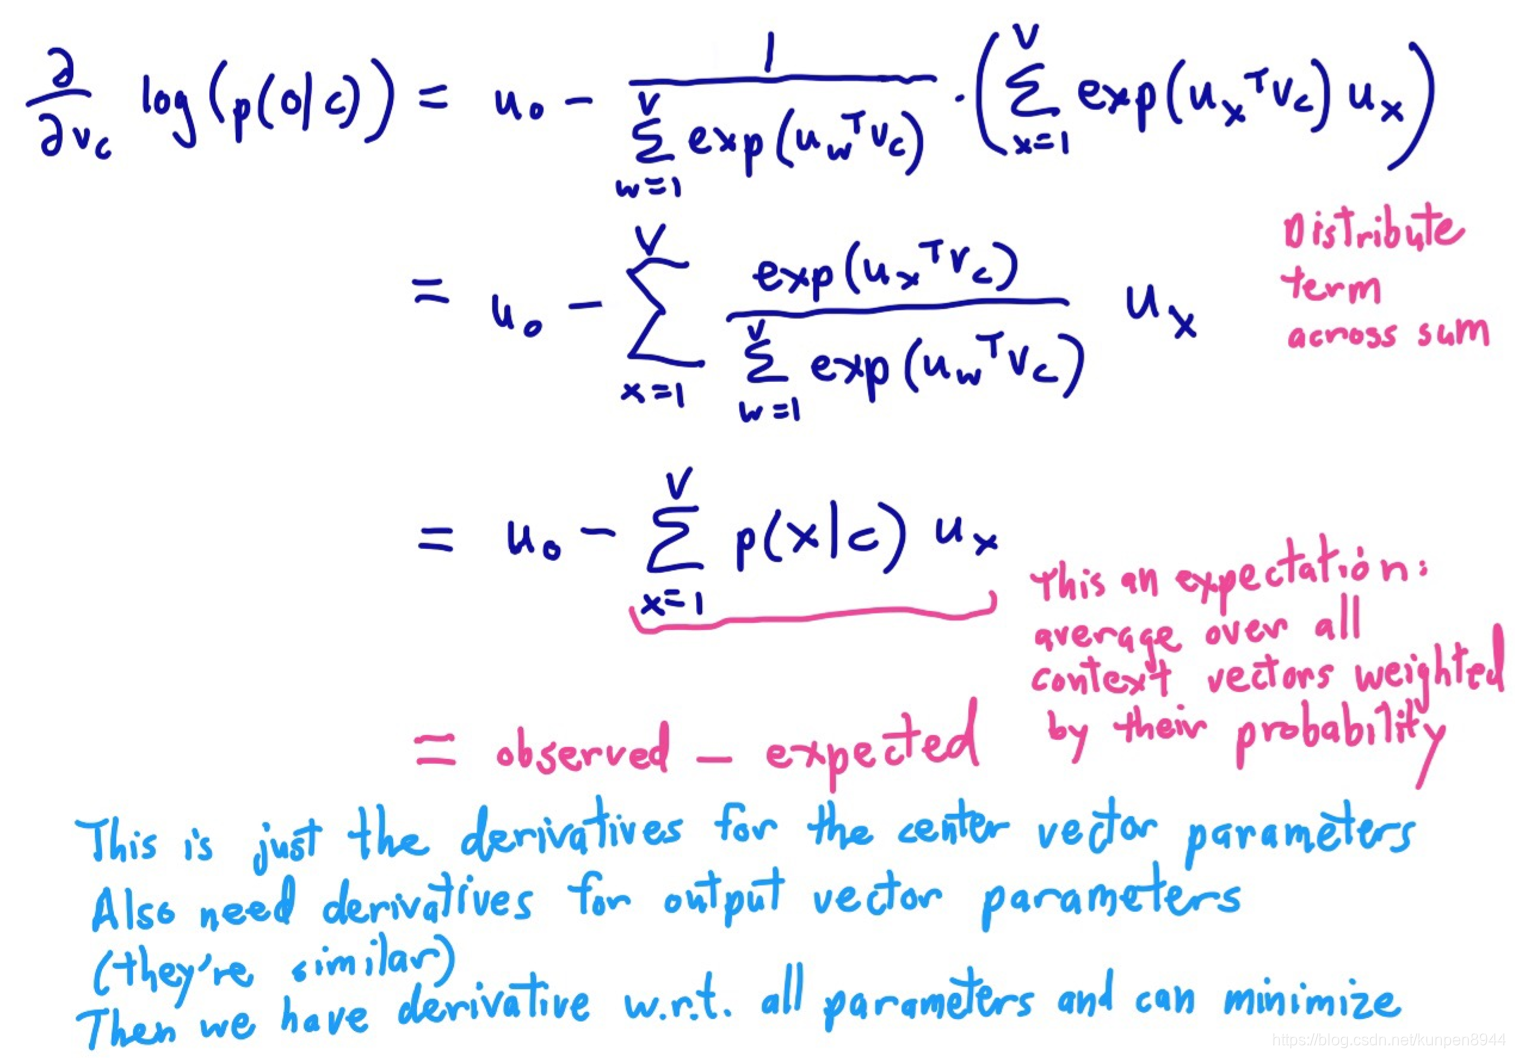 ∂/∂v_c log(p(o|c)) = u_o - 1/(∑_{w=1}^{V} exp(u_w^T v_c)) · (∑_{x=1}^{V} exp(u_x^T v_c) u_x)
= u_o - ∑_{x=1}^{V} exp(u_x^T v_c)/(∑_{w=1}^{V} exp(u_w^T v_c)) u_x
Distribute
term
across sum
= u_o - ∑_{x=1}^{V} p(x|c) u_x
This an expectation:
average over all
context vectors weighted
by their probability
= observed - expected
This is just the derivatives for the center vector parameters
Also need derivatives for output vector parameters
(they're similar)
Then we have derivative w.r.t. all parameters and can minimize
https://blog.csdn.net/kunpen8944